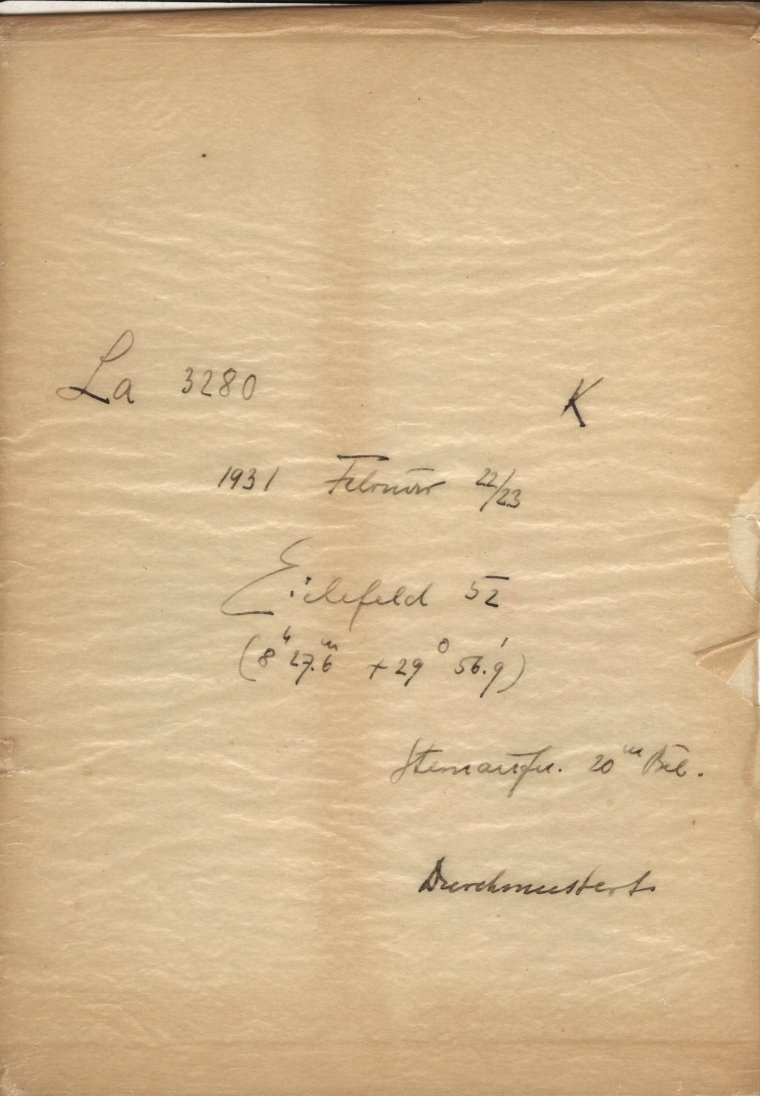 La 3280 K
1931 Februar 22/23
Eichefeld 52
(8h 27.6m +29° 56.9')
Sternaufn. 20m Bel.
Durchmustert.